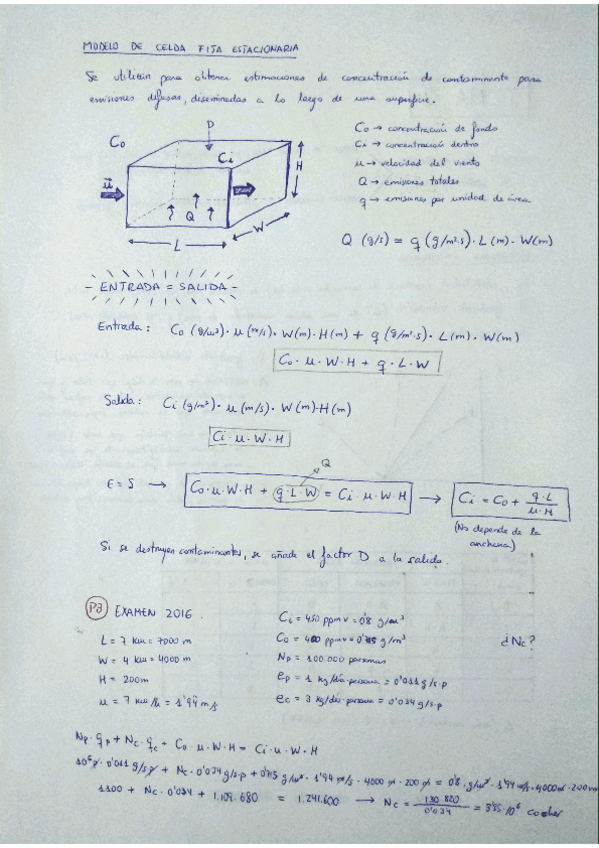 MODELO DE CELDA FIJA ESTACIONARIA
Se utilizan para obtener estimaciones de concentración de contaminante para
emisiones difusas, diseminadas a lo largo de una superficie.
C0 → concentración de fondo
Ci → concentración dentro
u → velocidad del viento
Q → emisiones totales
q → emisiones por unidad de área
C0
D
Ci
H
u
Q
L
W
Q (g/s) = q (g/m²·s) · L (m) · W(m)
ENTRADA = SALIDA
Entrada: C0 (g/m³) · u (m/s) · W(m) · H(m) + q (g/m²·s) · L(m) · W(m)
C0 · u · W · H + q · L · W
Salida: Ci (g/m³) · u (m/s) · W(m) · H(m)
Ci · u · W · H
Q
E = S → C0 · u · W · H + q · L · W = Ci · u · W · H → Ci = C0 + q·L / u·H
(No depende de la
anchura)
Si se destruyen contaminantes, se añade el factor D a la salida.
P3 EXAMEN 2016.
L = 7 km = 7000 m
W = 4 km = 4000 m
H = 200m
u = 7 km/h = 1'94 m/s
Ci = 450 ppmv = 0'8 g/m³
C0 = 400 ppmv = 0'715 g/m³
Np = 100.000 personas
ep = 1 kg/día·persona = 0'011 g/s·p
ec = 3 kg/día·persona = 0'034 g/s·p
¿Nc?
Np · qp + Nc · qc + C0 · u · W · H = Ci · u · W · H
10⁵ p · 0'011 g/s·p + Nc · 0'034 g/s·p + 0'715 g/m³ · 1'94 m/s · 4000 m · 200 m = 0'8 g/m³ · 1'94 m/s · 4000m · 200m
1100 + Nc · 0'034 + 1.109.680 = 1.241.600 → Nc = 130.820 / 0'034 = 3'85·10⁶ coches